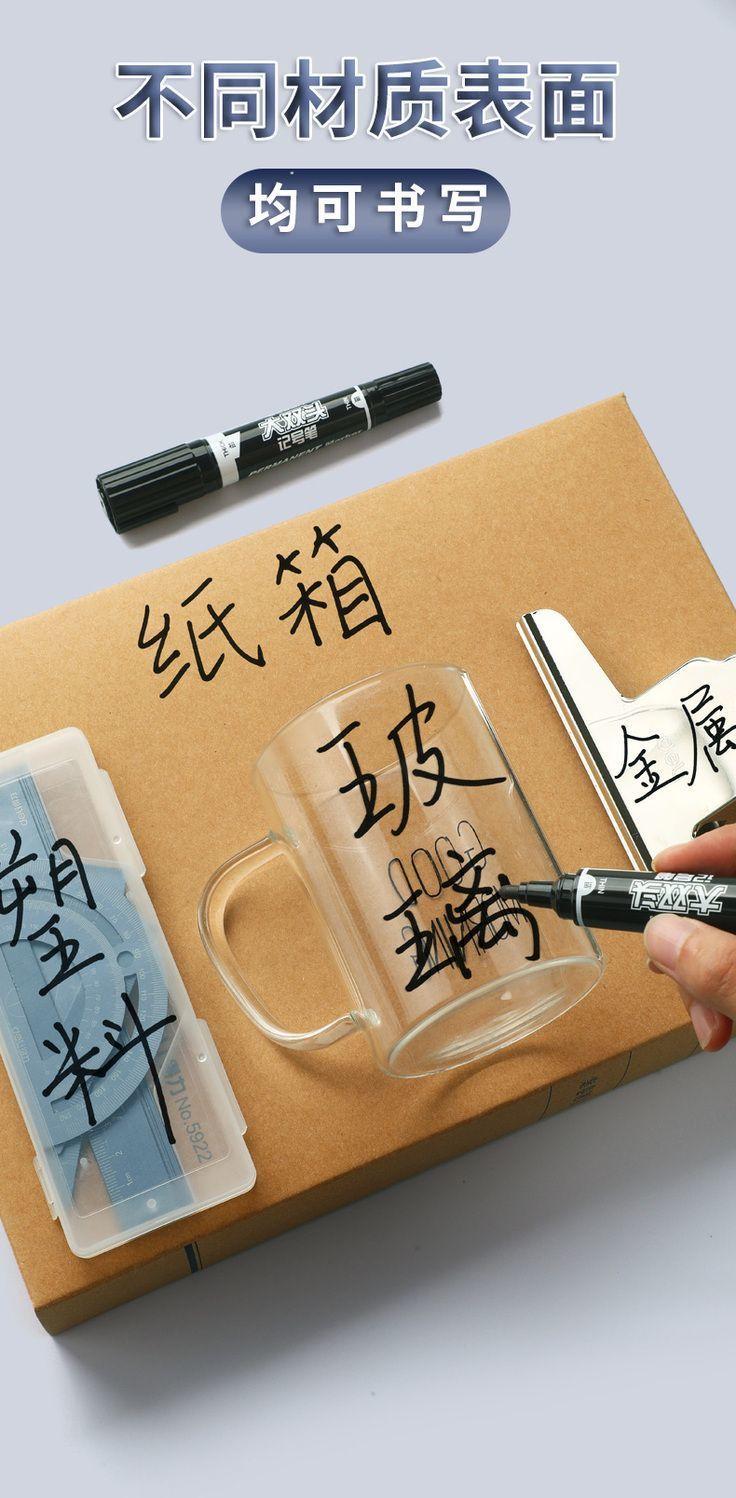 不同材质表面
均可书写
THICK
大双头
记号笔
PERMANENT Marker
纸箱
玻
璃
金属
塑
料
GOOD
MORNING
得力 No.5922
大双头
记号笔